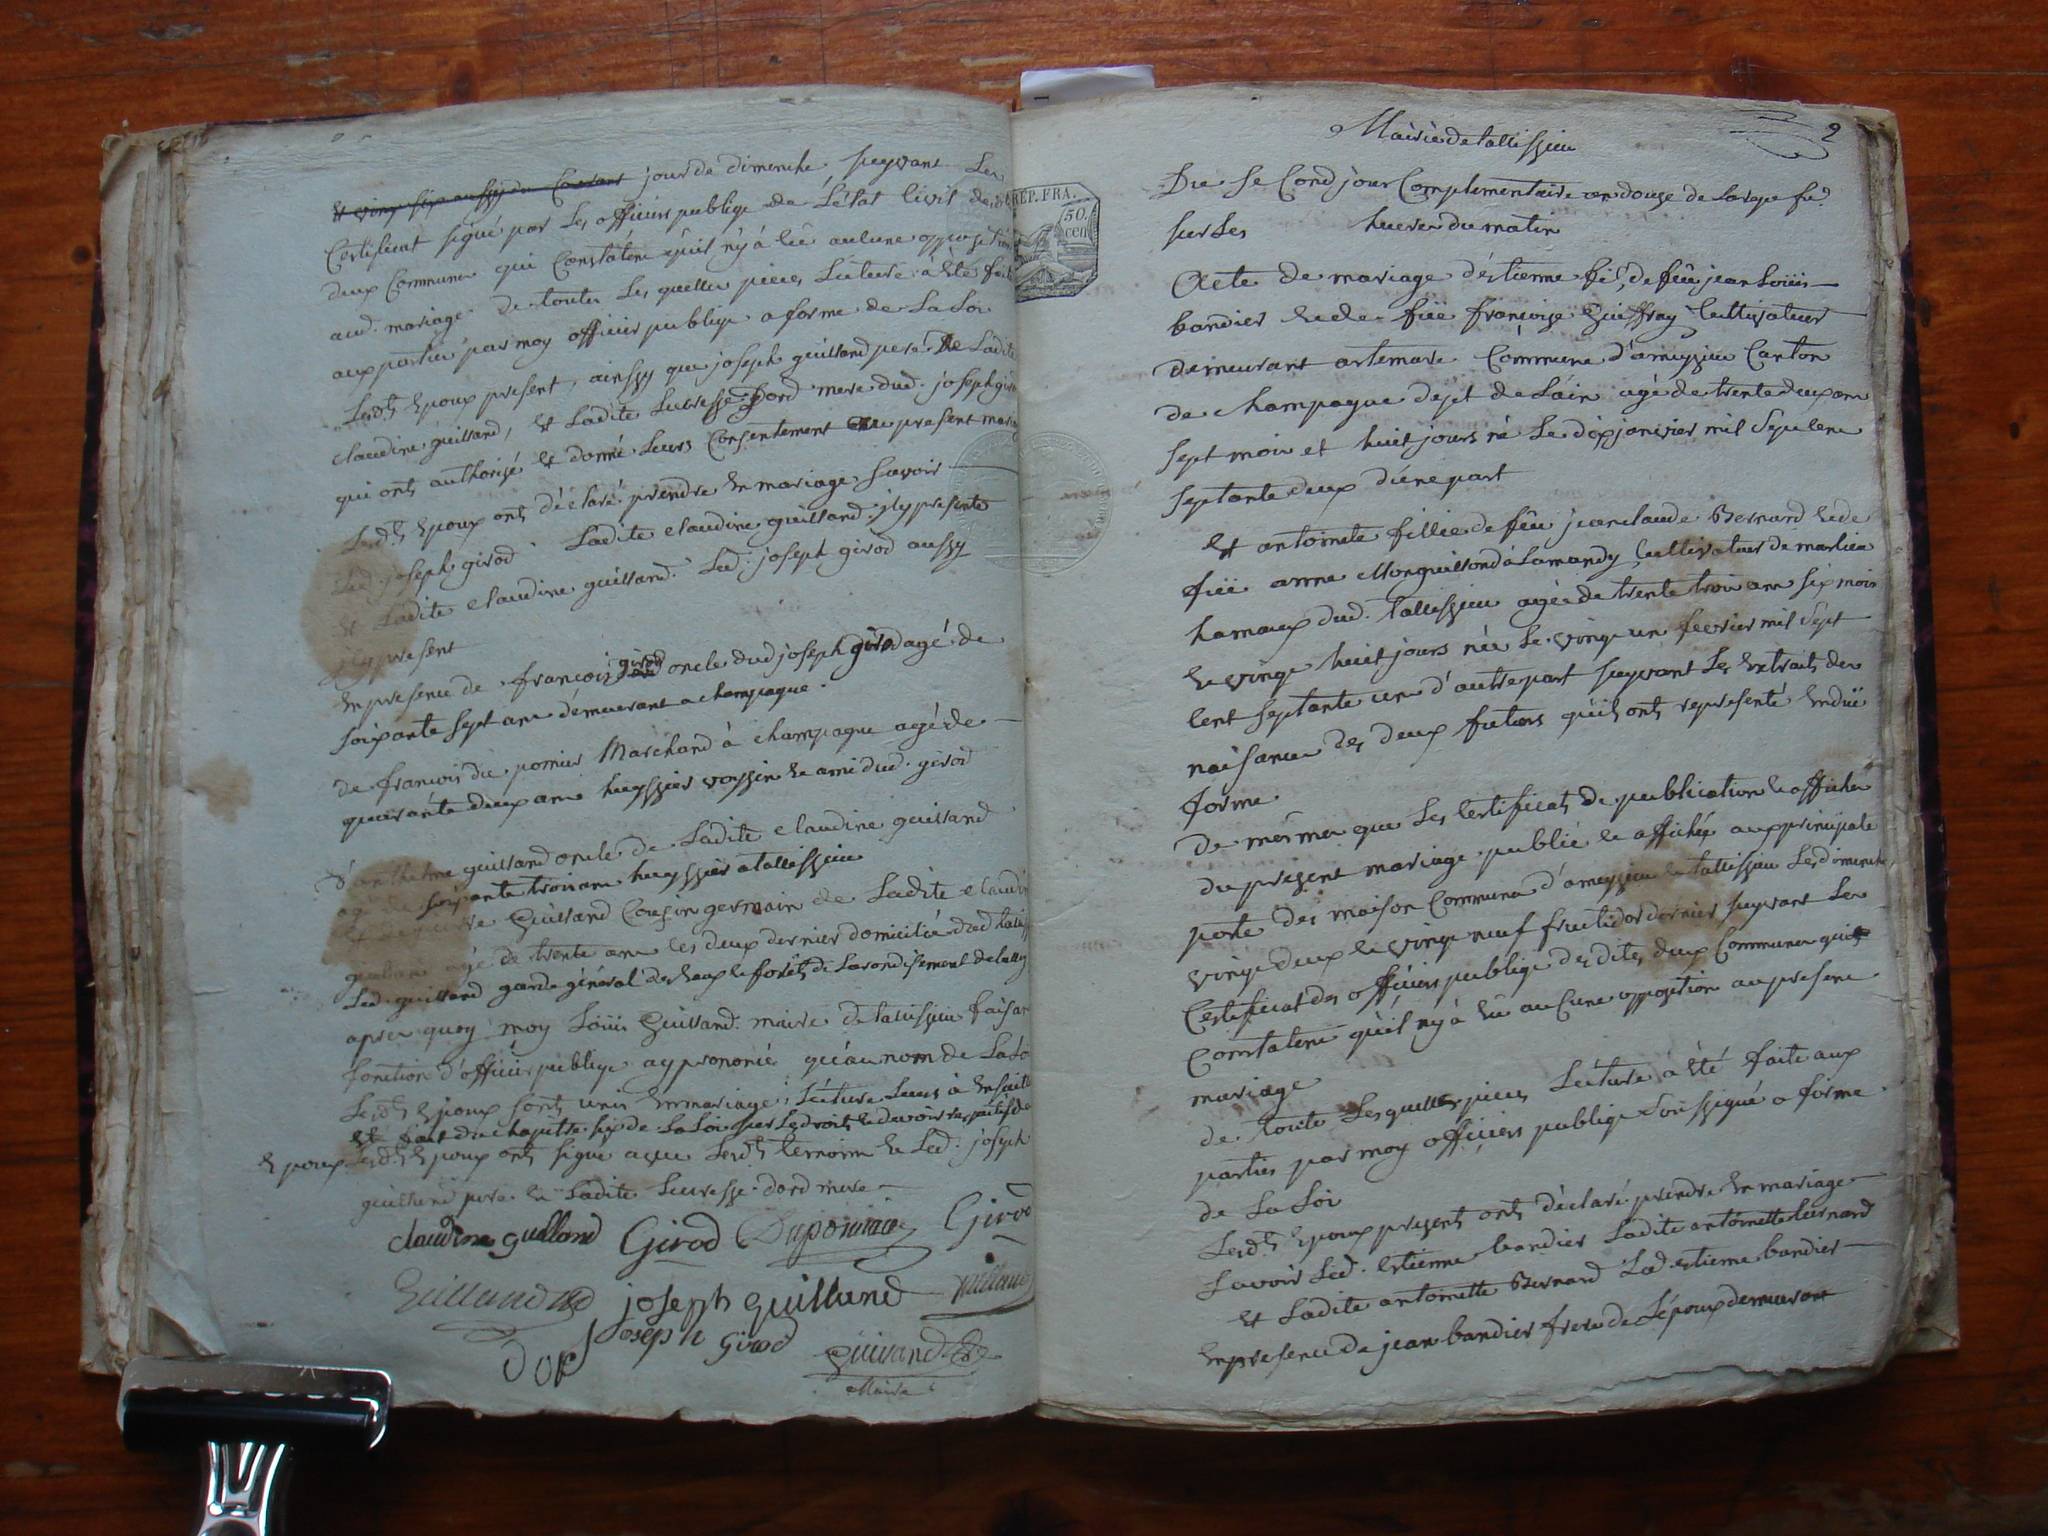 et vingt six aussy du Courant jour de dimenche, suyvant Les
Certificat signé par Les officiers publige de L'état Civil des
deux Communes qui Constatene qu'il ny à hû aulune opposition
aud. mariage. de toutes Les quelles pieces Lecture à été faite
aux parties par moy officier publige a forme de La Loi
Lesdts Epoux present, ainssy que joseph guilland pere De Ladite
claudine guilland, et Ladite Lucresse Dord mere dud. joseph girod
qui onts authorisé et donné Leurs Consentement au present mariage
Lesdts Epoux onts déclaré prendre En mariage Savoir
Led. joseph girod Ladite claudine guilland. jlypresente
et Ladite claudine guilland. Led. joseph girod aussy
jlypresent
En presence de françois girod oncle dud joseph girod agé de
Soixante Sept ans démeurant a champagne.
de francois du pomier Marchand à champagne agé de
quarante deux ans huyssier voyssin et ami dud. girod
d'anthelme guilland oncle de Ladite claudine guilland
agé de soixante trois ans huyssier a tallissieu
Guilland Cousin germain de Ladite claudine
guilland agé de trente ans les deux dernier domicilié dud talissieu
Led. guilland garde général des Eaux et forêts de Larondissement de
apres quoy moy Loüis Guilland. maire de talissieu faisant
fonction d'officier publige ay prononcé qu'au nom de La Loi
Lesdts Epoux sonts unis En mariage; Lécture Leurs à En suite
été fait du chapitre six de La Loi sur Les droits et devoirs respectifs des
Epoux. Lesdts Epoux onts signe avec Lesdts temoins et Led. joseph
guilland pere et Ladite Lucresse dord mere
claudine guilland Girod Duponiac Girod
Guilland joseph Guilland Guilland
Dor joseph Girod Guilland
Maire
REP. FRA.
50.
cen
Mairie de tallissieu
2
Du Se Cond jour Complimentaire an douze de La repe fse
sur Les heures du matin
Acte de mariage d'éstienne fils de feû jean Loüis
bandier et de fûë françoise Guiffray Cultivateur
demeurant artemare Commune d'ameyzieu Canton
de champagne dept de Lain agé de trente deux ans
Sept mois et huit jours né Le dix janvier mil Sept Cent
Septante deux d'éne part
et antoinete fillie de feû jean claude Bernard et de
fûë anne Monguillond à Lamandy, Cultivateur de marlieu
hamaux dud. tallissieu agée de trente trois ans six mois
et vingt huit jours née Le vingt un fevrier mil Sept
Cent Septante un d'autre part Suyvant Les Extraits des
naissance des deux futurs qu'ils onts representé En düë
forme
de mêsmes que Les Certificats de publication et affiches
du present mariage. publié et affiché aux principale
porte des maison Commune d'ameyzieu et tallissieu Les dimenche
vingt deux et vingt neuf fructidor dernier suyvant Les
Certificat des officiers publige desdites deux Communes qui
Constatene qu'il ny à hû auCune opposition au present
mariage
de toute Lesquelles pieces Lecture à été faite aux
parties par moy officiers publige Soussigné a forme
de La Loi
Lesdts Epoux presents onts déclaré prendre En mariage
Savoir Led. Estienne bandier Ladite antoinette bernard
et Ladite antoinette Bernard Led. estienne bandier
En presence de jean bandier frere de L'époux demeurant